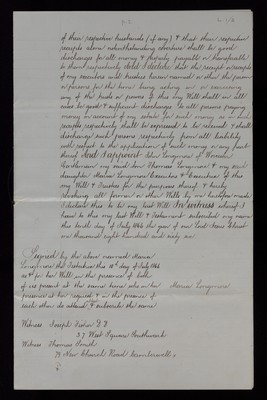 of their respective husbands (if any) & that their respective
receipts alone notwithstanding coverture shall be good
discharges for all money & Property payable or transferable
to them respectively And I declare that the receipt or receipts
of my executors and trustees herein named or other the person
or persons for the time being acting as or executors
any of the trusts or powers of this my Will shall in all
cases be good & sufficient discharges to all persons paying
money on account of my estate for such money as in such
receipts respectively shall be expressed to be received & shall
discharge such persons respectively from all liability
with respect to the application of such money or any part
thereof And I appoint the
Gentleman my said son Thomas Longmore & my said
daughter Maria Longmore Executors & Executrix of this
my Will & Trustees for the purposes thereof & hereby
revoking all former or other Wills by me heretofore made
I declare this to be my last Will In witness whereof I
have to this my last Will & Testament subscribed my name
this tenth day of July 1866 the year of our Lord
one thousand eight hundred and sixty six
Signed by the above named Maria
Longmore the Testatrix this 10th day of July 1866
as & for her Will in the presence of both
of us present at the same time who in her
presence at her request & in the presence of
each other do attest & subscribe the same
Maria Longmore
Witness Joseph
37 West Square Southwark
Witness Thomas Smith
79 New Church Road Camberwell